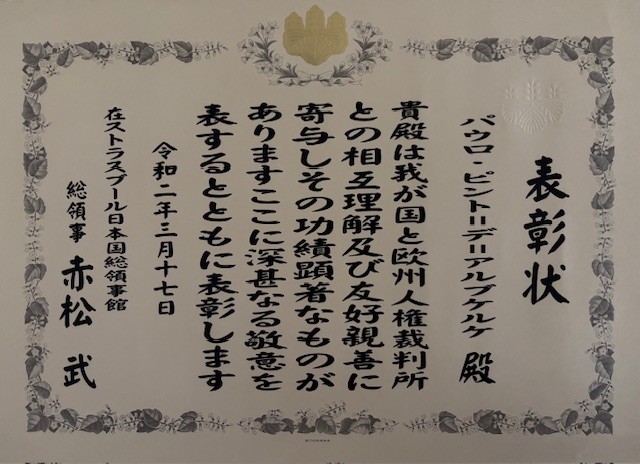 表彰状
パウロ・ピント＝デ＝アルブケルケ 殿
貴殿は我が国と欧州人権裁判所
との相互理解及び友好親善に
寄与しその功績顕著なものが
ありますここに深甚なる敬意を
表するとともに表彰します
令和二年三月十七日
在ストラスブール日本国総領事館
総領事 赤松 武